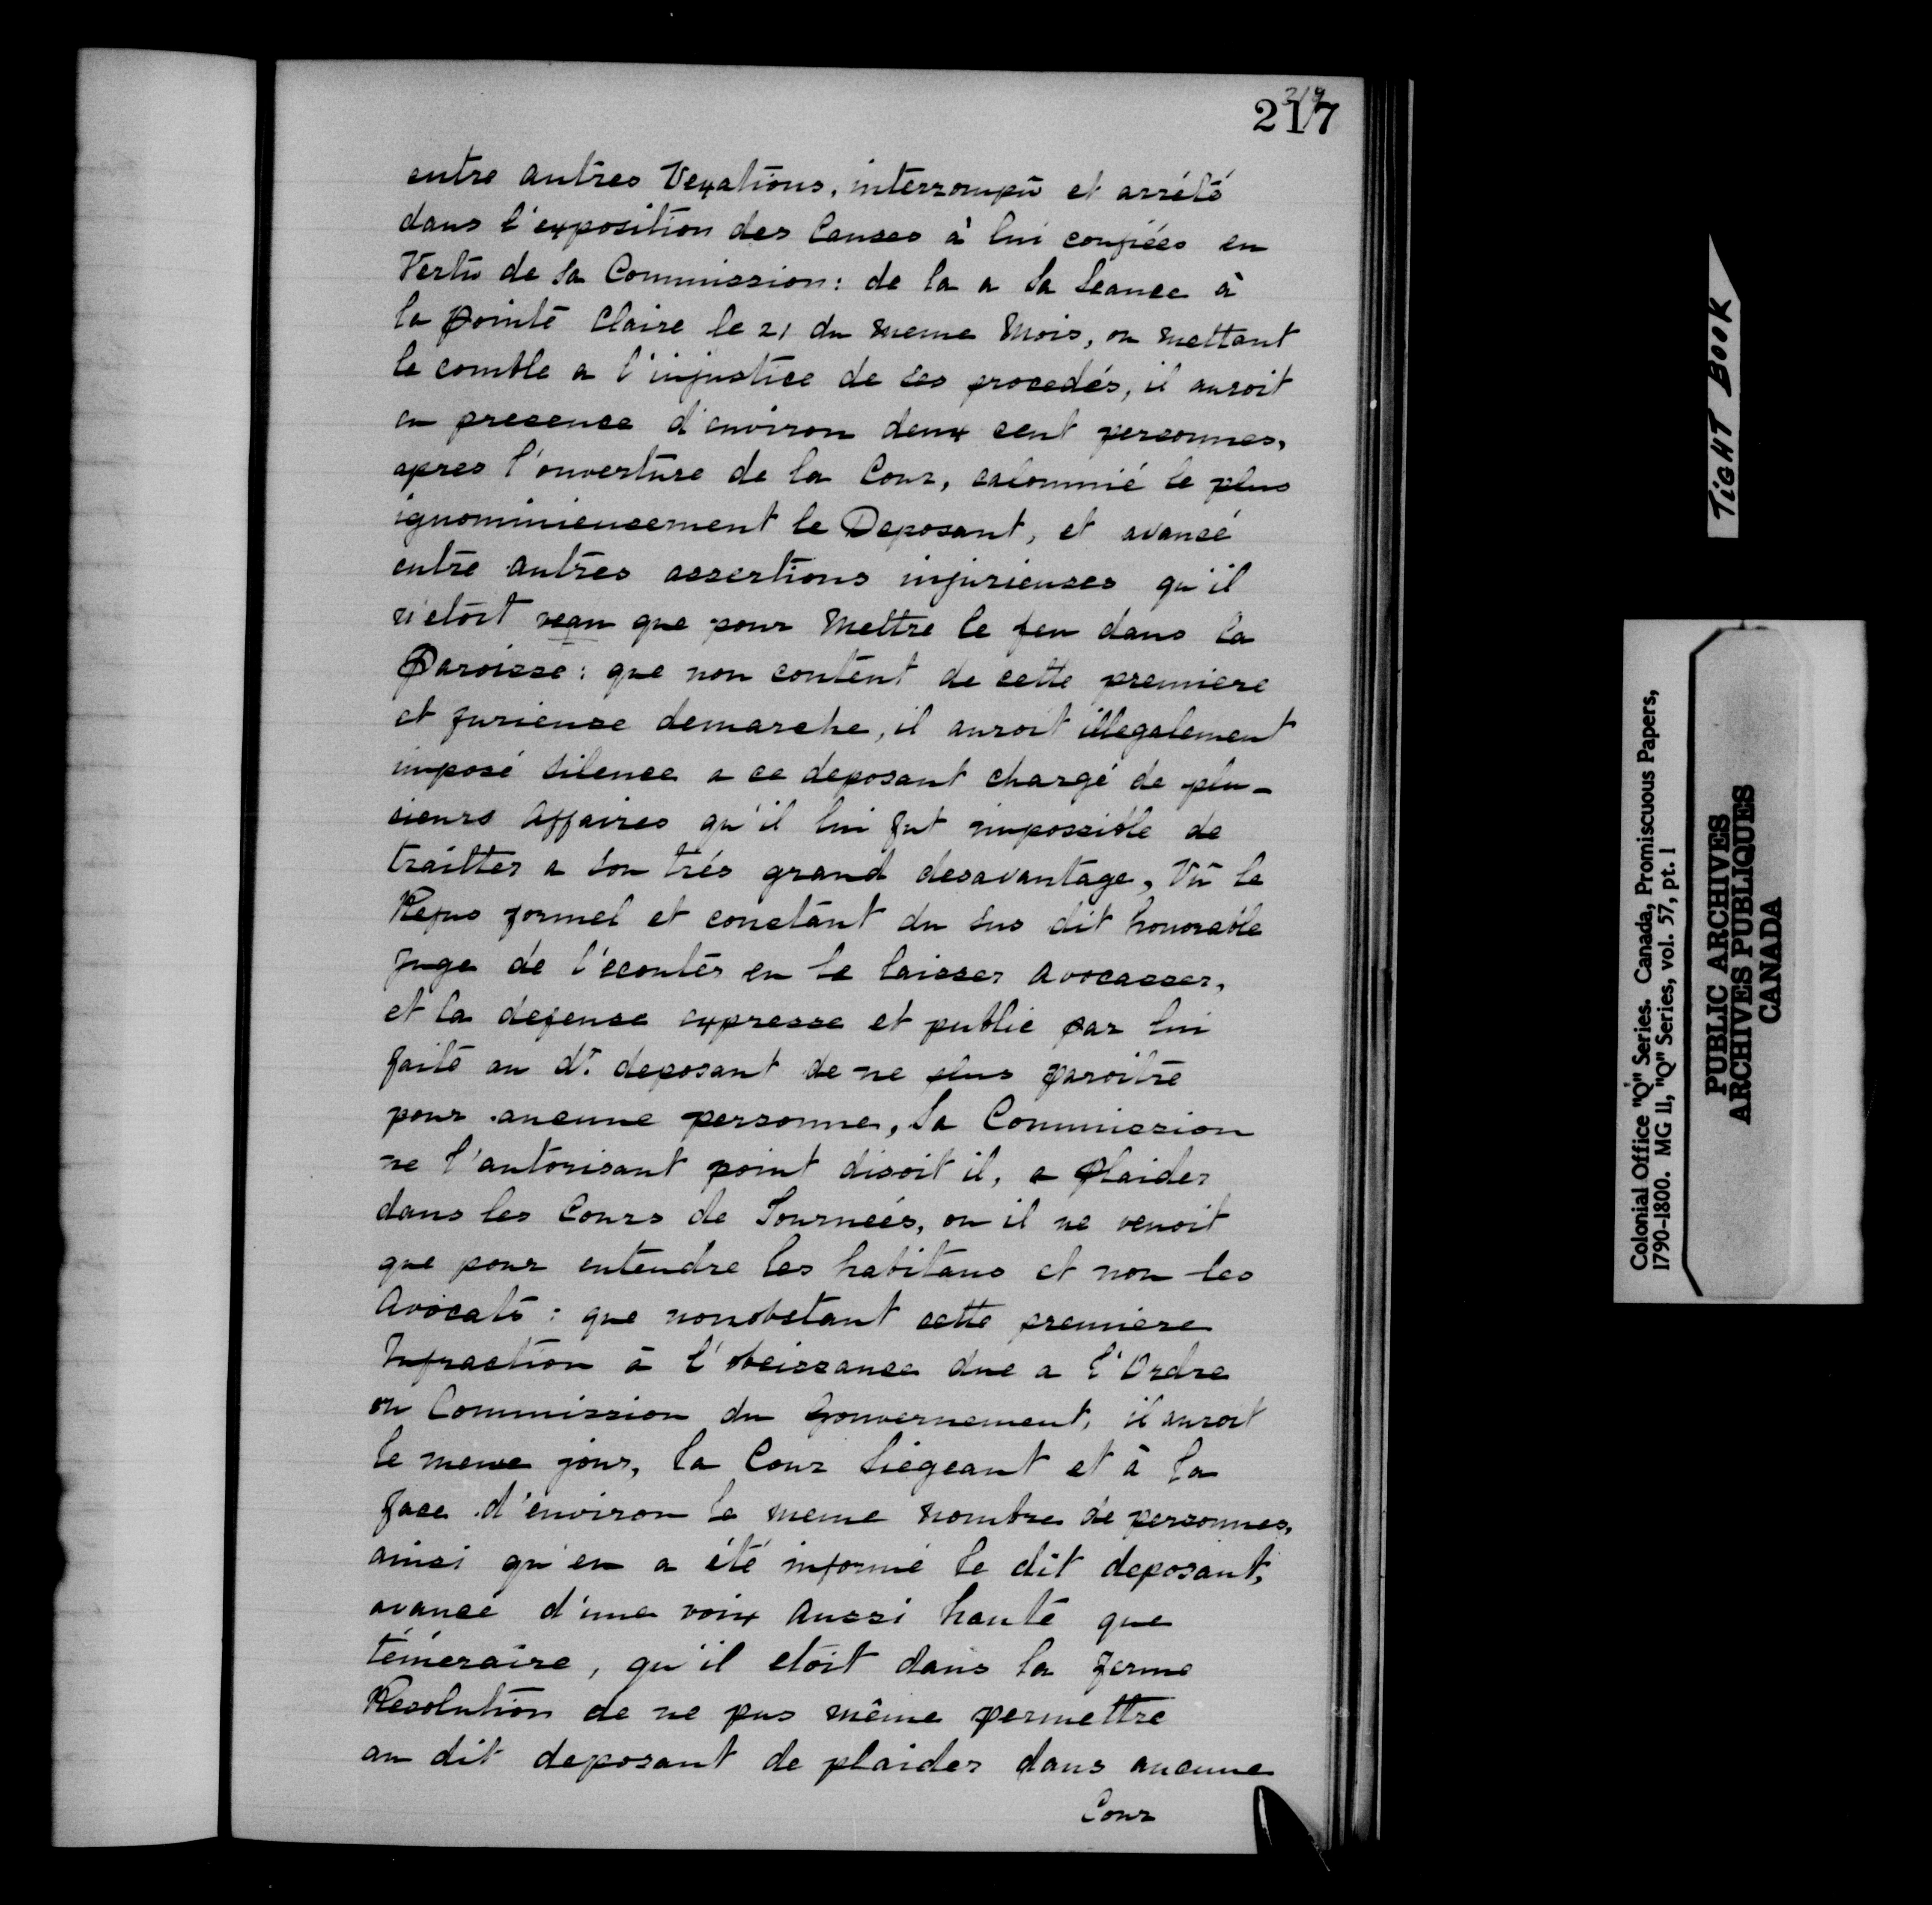 217
entre autres Vexations, interrompu et arrété
dans l'exposition des Causes à lui confiées en
Vertu de sa Commission: de la a sa Seance à
la pointe Claire le 21 du meme Mois, ou mettant
le comble a l'injustice de ses procedés, il auroit
en presence d'environ deux cent personnes,
apres l'ouverture de la Cour, calomnié le plus
ignominieusement le Deposant, et avancé
entre autres assertions injurieuses qu'il
n'etoit venu que pour Mettre le feu dans la
Paroisse: que non content de cette premiere
et furieuse demarche, il auroit illegalement
imposé silence a ce deposant chargé de plu-
sieurs Affaires qu'il lui fut impossible de
traitter a son trés grand desavantage, Vû le
Refus formel et constant du sus dit honorable
Juge de l'ecouter en le laisser avocasser,
et la defense expresse et public par lui
faite au dt. deposant de ne plus paroitre
pour aucune personne, sa Commission
ne l'autorisant point disoit il, a plaider
dans les Cours de Tourneés, ou il ne venoit
que pour entendre les habitans et non les
Avocats: que nonobstant cette premiere
Infraction à l'obeissance due a l'Ordre
ou Commission du Gouvernement, il auroit
le meme jour, la Cour Siégeant et à la
face d'environ le meme nombre de personnes,
ainsi qu'en a été informé le dit deposant,
avancé d'une voix aussi haute que
téméraire, qu'il etoit dans la ferme
Resolution de ne pas même permettre
au dit deposant de plaider dans aucune
Cour
TIGHT BOOK
Colonial Office "Q" Series. Canada, Promiscuous Papers,
1790-1800. MG 11, "Q" Series, vol. 57, pt. 1
PUBLIC ARCHIVES
ARCHIVES PUBLIQUES
CANADA